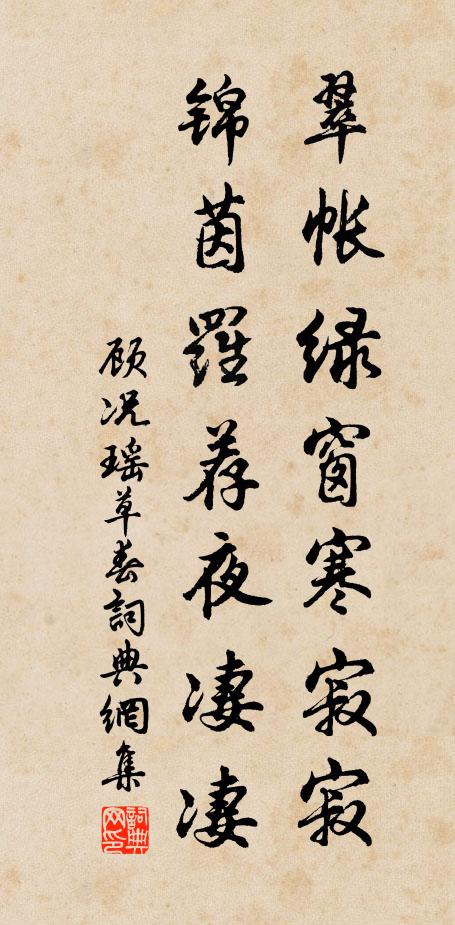 翠帐绿窗寒寂寂
锦茵罗荐夜凄凄
顾况瑶草春詞典網集
詞典网印